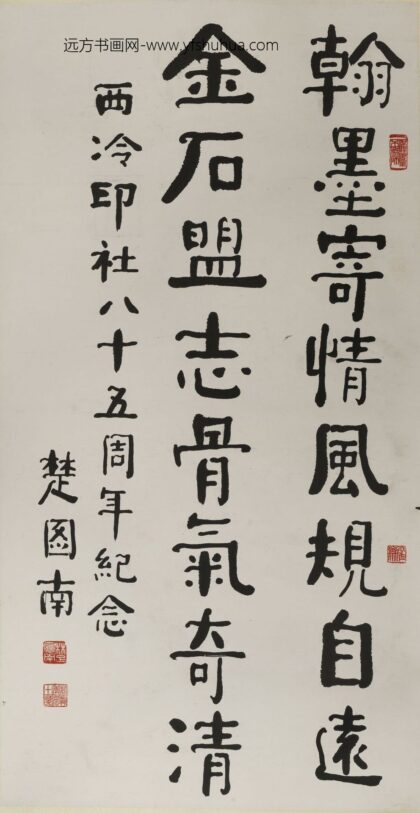 远方书画网-www.yfshuhua.com
翰墨寄情風規自遠
金石盟志骨氣奇清
西泠印社八十五周年紀念
楚图南